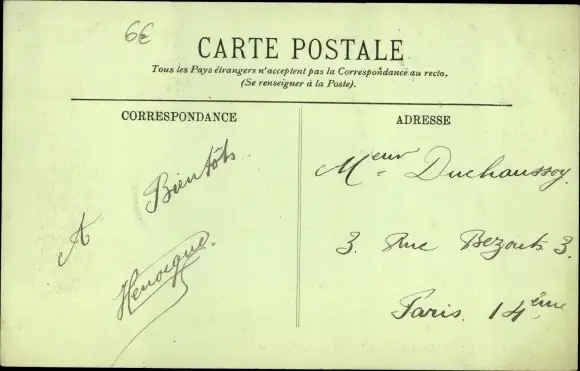 6€
CARTE POSTALE
Tous les Pays étrangers n'acceptent pas la Correspondance au recto.
(Se renseigner à la Poste).
CORRESPONDANCE
A Bientôts
Henocque.
ADRESSE
Meur Duchaussoy.
3. Rue Bezouts 3.
Paris. 14ème